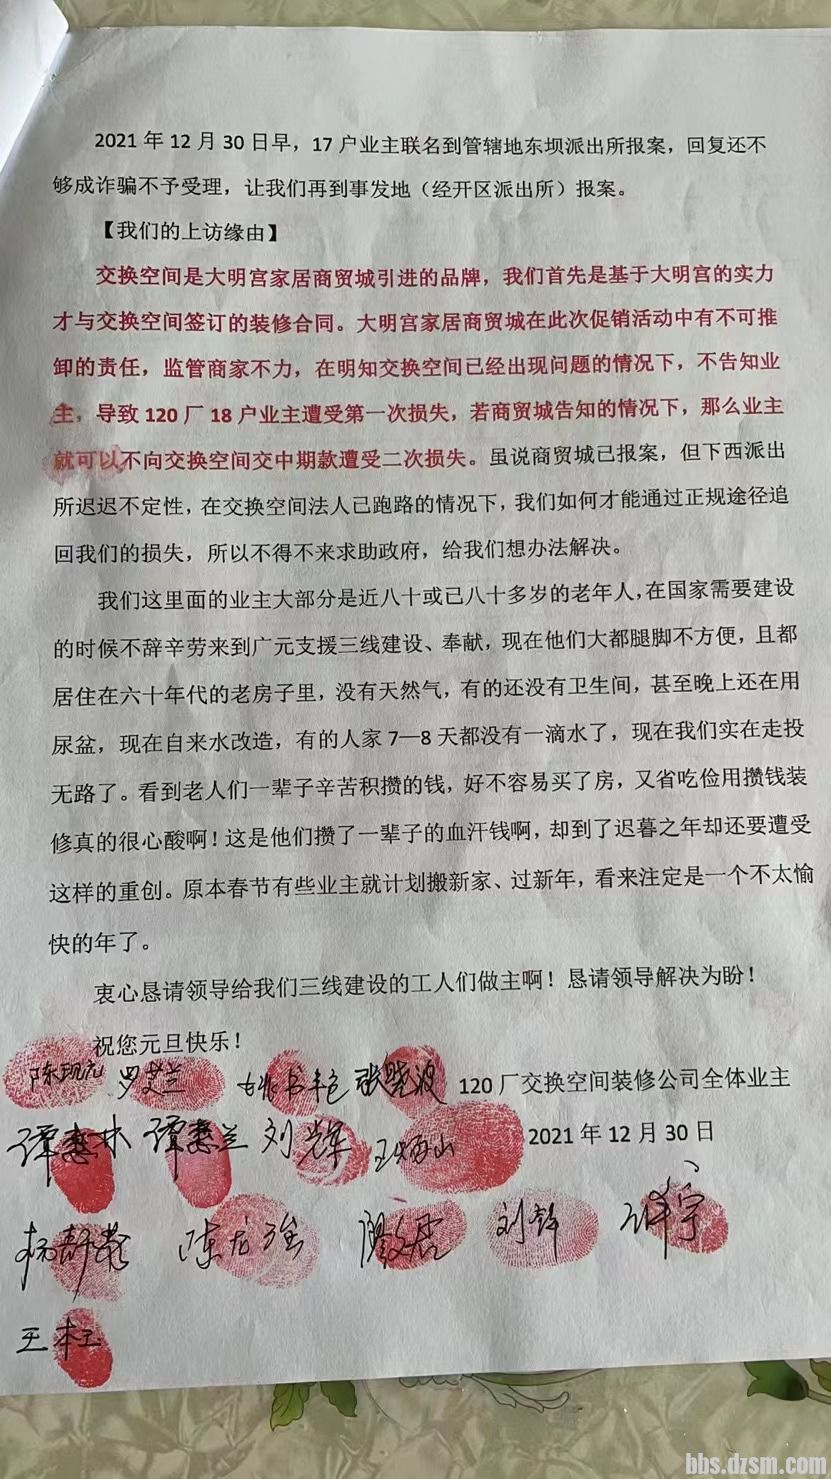 2021 年 12 月 30 日早，17 户业主联名到管辖地东坝派出所报案，回复还不
够成诈骗不予受理，让我们再到事发地（经开区派出所）报案。
【我们的上访缘由】
交换空间是大明宫家居商贸城引进的品牌，我们首先是基于大明宫的实力
才与交换空间签订的装修合同。大明宫家居商贸城在此次促销活动中有不可推
卸的责任，监管商家不力，在明知交换空间已经出现问题的情况下，不告知业
主，导致 120 厂 18 户业主遭受第一次损失，若商贸城告知的情况下，那么业主
就可以不向交换空间交中期款遭受二次损失。虽说商贸城已报案，但下西派出
所迟迟不定性，在交换空间法人已跑路的情况下，我们如何才能通过正规途径追
回我们的损失，所以不得不来求助政府，给我们想办法解决。
我们这里面的业主大部分是近八十或已八十多岁的老年人，在国家需要建设
的时候不辞辛劳来到广元支援三线建设、奉献，现在他们大都腿脚不方便，且都
居住在六十年代的老房子里，没有天然气，有的还没有卫生间，甚至晚上还在用
尿盆，现在自来水改造，有的人家 7—8 天都没有一滴水了，现在我们实在走投
无路了。看到老人们一辈子辛苦积攒的钱，好不容易买了房，又省吃俭用攒钱装
修真的很心酸啊！这是他们攒了一辈子的血汗钱啊，却到了迟暮之年却还要遭受
这样的重创。原本春节有些业主就计划搬新家、过新年，看来注定是一个不太愉
快的年了。
衷心恳请领导给我们三线建设的工人们做主啊！恳请领导解决为盼！
祝您元旦快乐！
陈现元 罗艾兰 张晓波 120 厂交换空间装修公司全体业主
谭惠林 谭惠兰 刘辉 2021 年 12 月 30 日
陈龙强 刘锋
王杜
bbs.dzsm.com